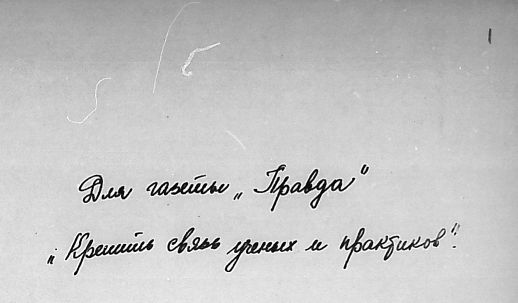 Для газеты „Правда"
„Крепить связь ученых и практиков".